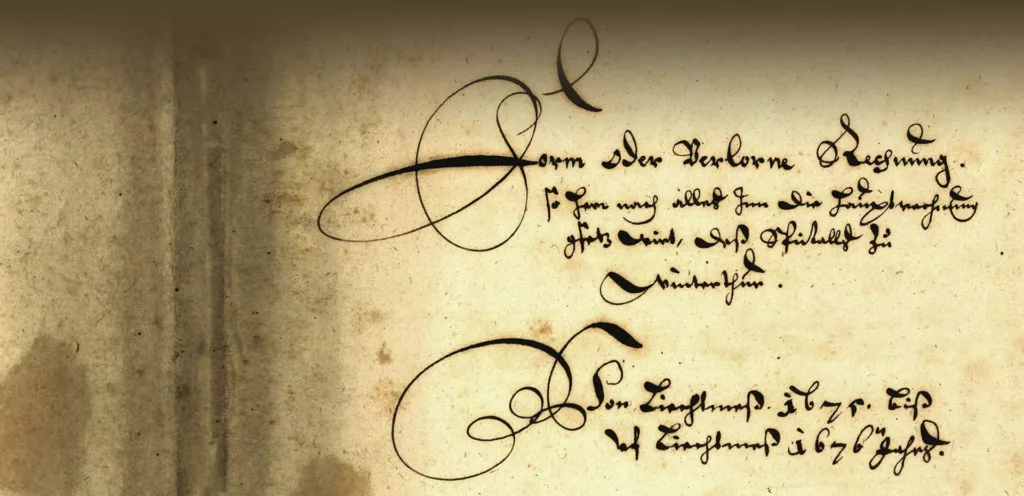 Form oder Verlorne Rechnung.
so hern nach alles Inn die hauptrechnung
gsetz wirt, deß Spitalls zu
Winterthur.
Von Liechtmeß 1675. biß
uf Liechtmeß 1676 Jahrs.